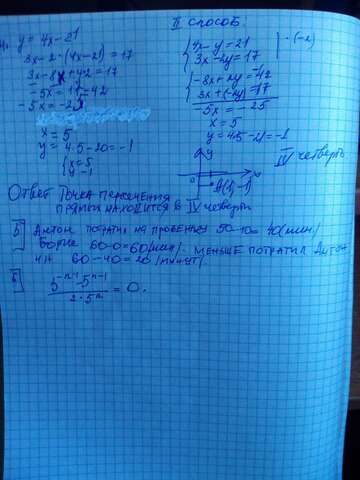 4. y = 4x - 21
3x - 2·(4x-21) = 17
3x - 8x + 42 = 17
-5x = 17 - 42
-5x = -25
x = 5
y = 4·5 - 20 = -1
{x = 5
y = -1
II способ.
{4x - y = 21 | ·(-2)
3x - 2y = 17
{-8x + 2y = -42
3x + (-2y) = 17
-5x = -25
x = 5
y = 4·5 - 21 = -1
y
0
x
A(5; -1)
IV четверть
Ответ Точка пересечения
прямых находится в IV четверти
5 Антон потратил на пробежку 50-10 = 40 (мин.)
Борис 60-0 = 60 (мин). меньше потратил Антон
на 60-40 = 20 (минут).
6
= 0.